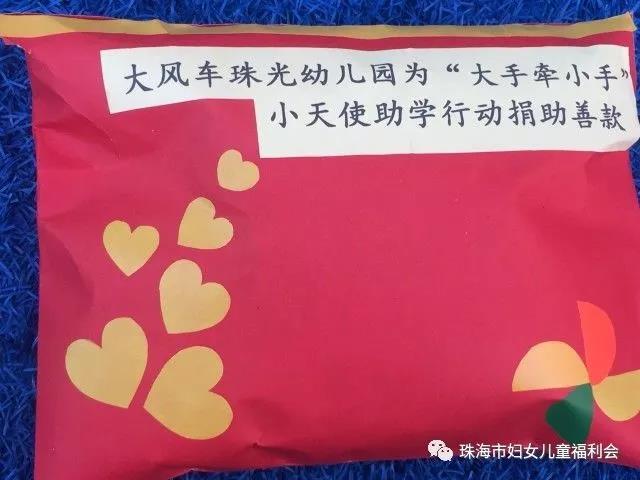 大风车珠光幼儿园为“大手牵小手”
小天使助学行动捐助善款
珠海市妇女儿童福利会